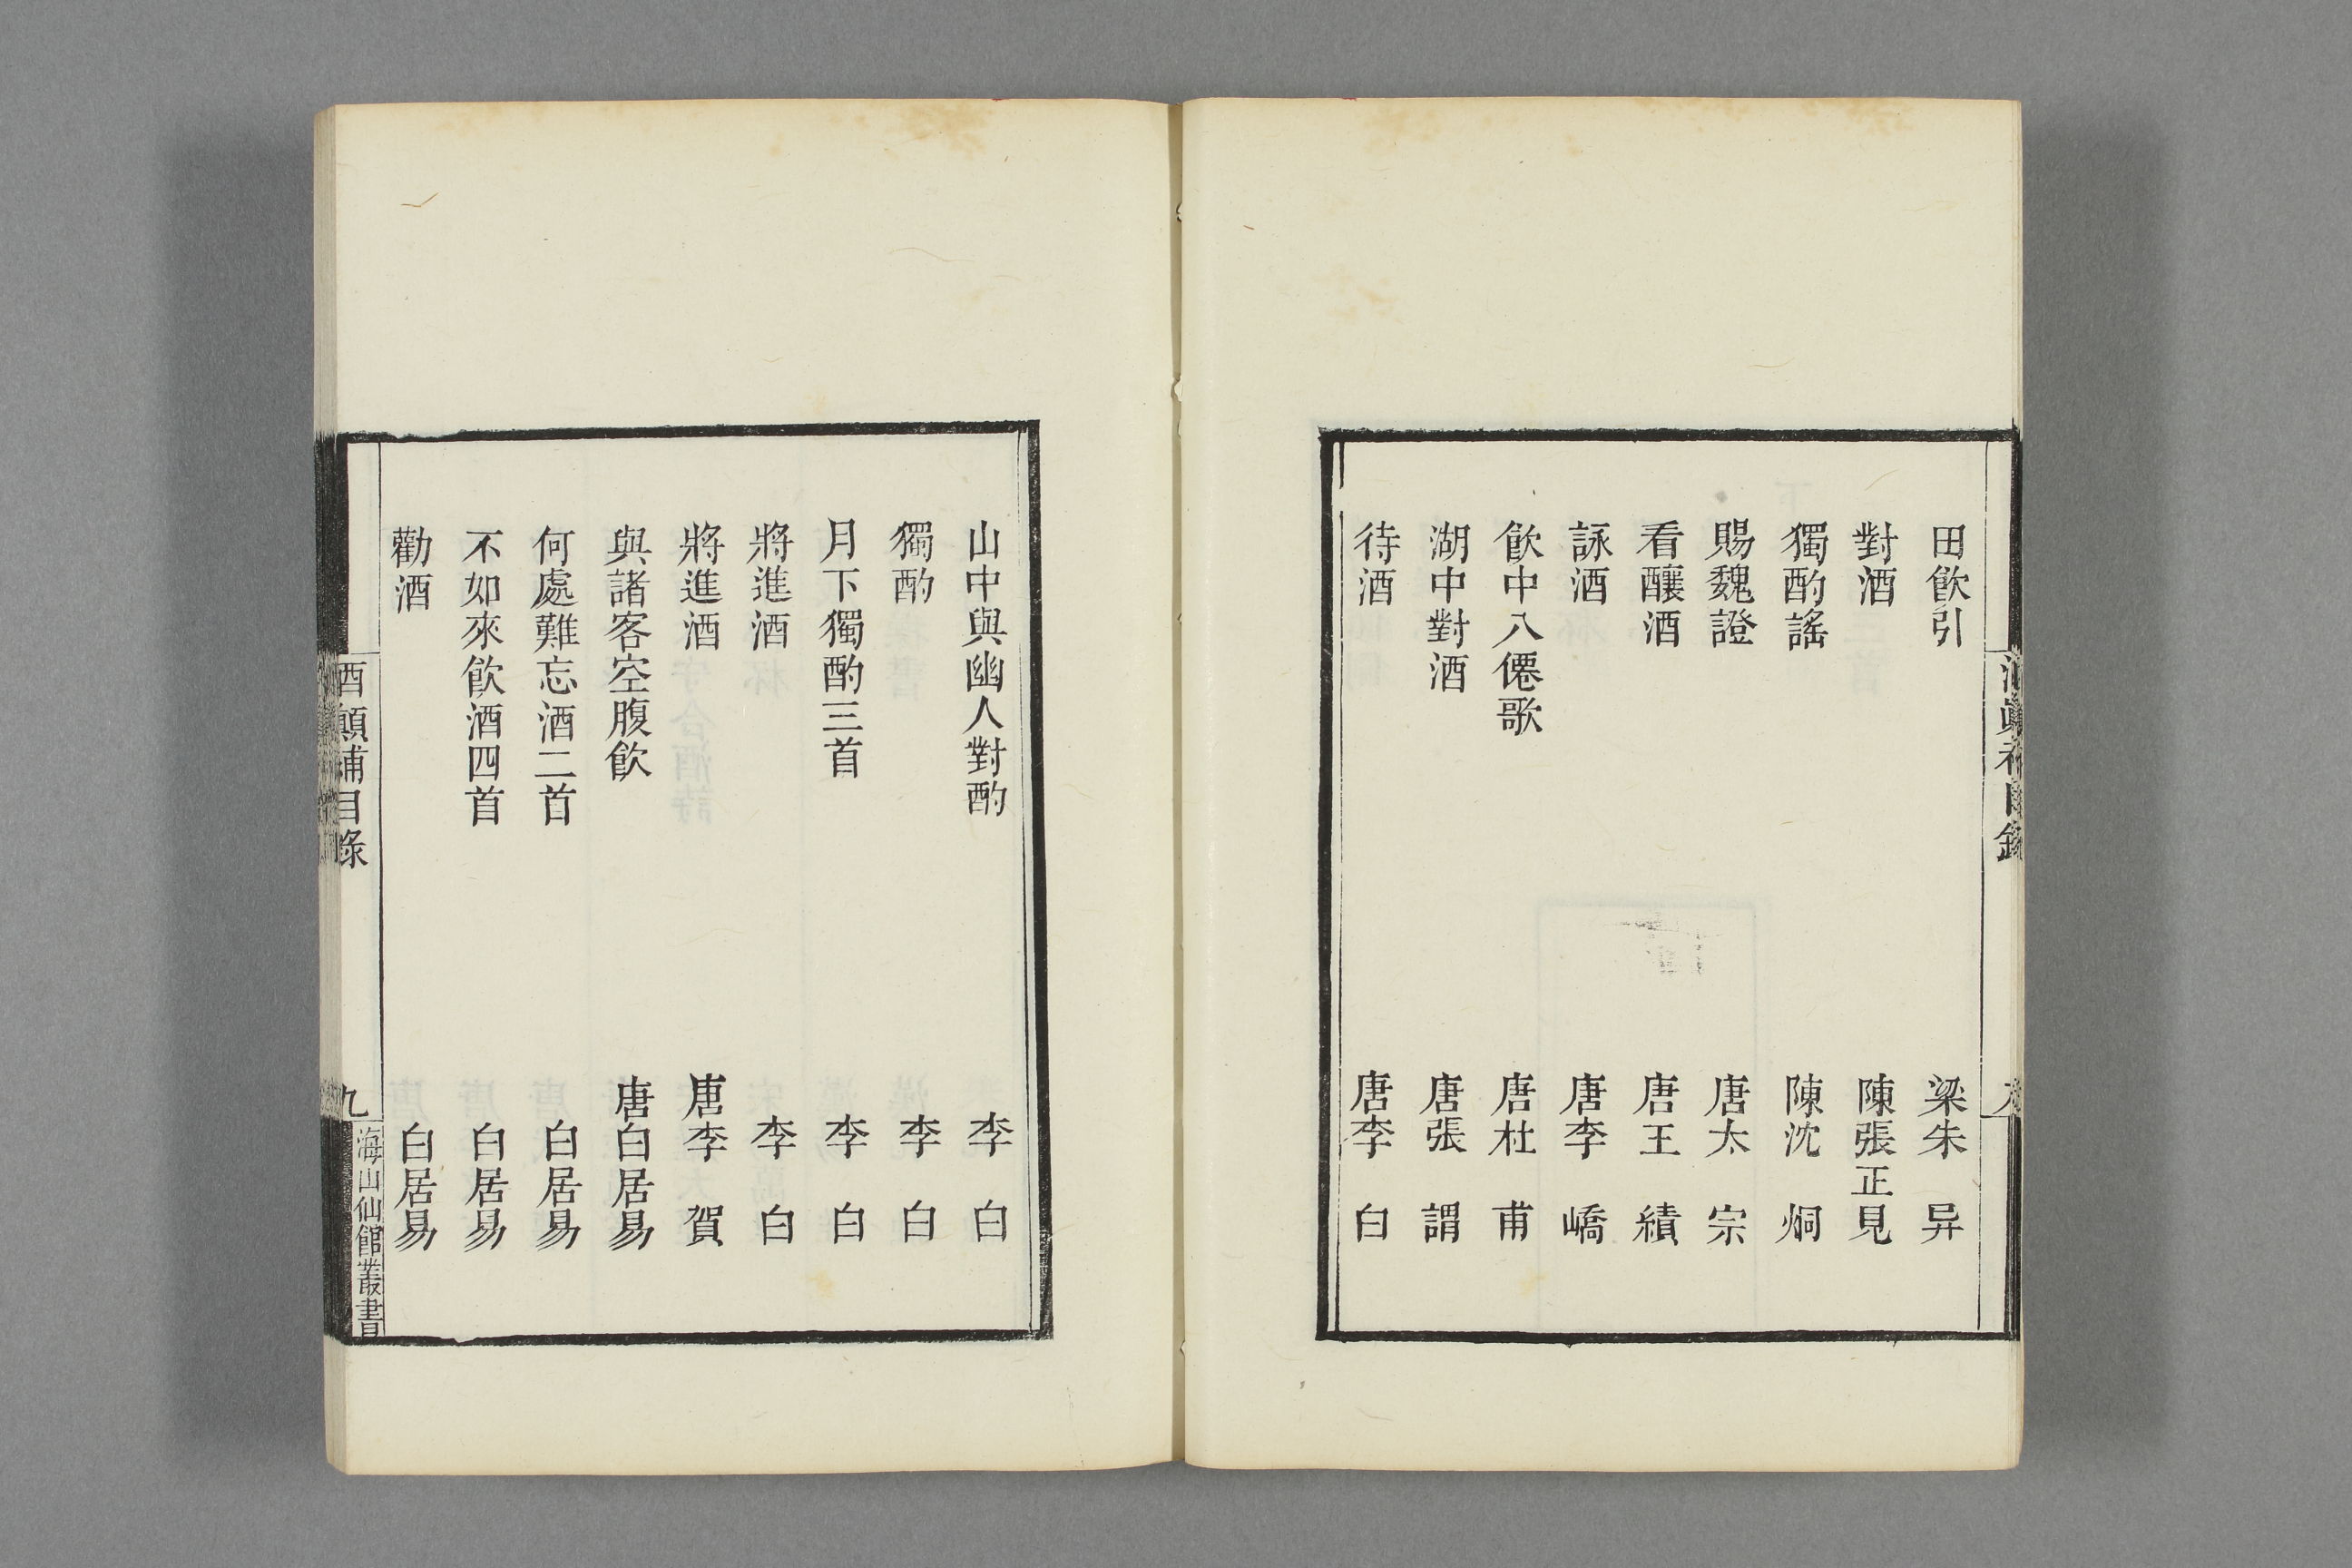 田飲引 梁朱异
對酒 陳張正見
獨酌謠 陳沈烱
賜魏證 唐太宗
看釀酒 唐王績
詠酒 唐李嶠
飲中八僊歌 唐杜甫
湖中對酒 唐張謂
待酒 唐李白
山中與幽人對酌 李白
獨酌 李白
月下獨酌三首 李白
將進酒 李白
將進酒 唐李賀
與諸客空腹飲 唐白居易
何處難忘酒二首 白居易
不如來飲酒四首 白居易
勸酒 白居易
酒顛補目錄
九
海山仙館叢書